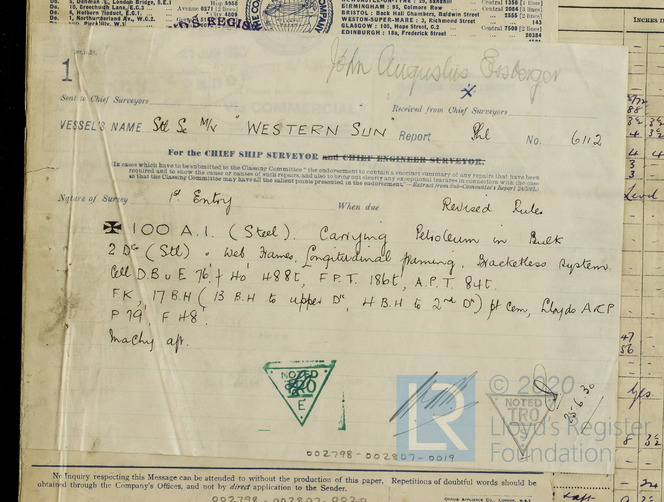 Do. 5, Denman St., London Bridge, S.E.1
Do. 10, Gracechurch Lane, E.C.3
Hop 5955
BIRMINGHAM: 95, Colmore Row
BRISTOL: Back Hall Chambers, Baldwin Street
WESTON-SUPER-MARE: 2, Richmond Street
GLASGOW: 105, Hope Street, C.2
EDINBURGH: 18a, Frederick Street
Central 1356
143
20384
COMPANY
INCHES
John Augustus Essberger
1
Sent to Chief Surveyors
Received from Chief Surveyors
VESSEL'S NAME Stl Sc M/V "WESTERN SUN" Report Phl No. 6112
For the CHIEF SHIP SURVEYOR and CHIEF ENGINEER SURVEYOR.
In cases which have to be submitted to the Classing Committee "the endorsement to contain a succinct summary of any repairs that have been
required and to show the cause or causes of such repairs, and also to bring out clearly any exceptional features in connection with the case
so that the Classing Committee may have all the salient points presented in the endorsement."
Nature of Survey 1st Entry When due Revised Rules
✠ 100 A.1. (Steel). Carrying Petroleum in Bulk
2 Dks (Stl) . Web Frames. Longitudinal framing. Bracketless System
Cell D.B u E 76' f 40' 488t, F.P.T. 186t, A.P.T. 84t.
FK, 17 B.H (13 B.H to upper Dk, 4 B.H to 2nd Dk) pt Cem, Lloyds A & C P
P 79' F 48'
Machy aft.
NOTED
TRO
E
NOTED
TRO
25.6.30
© 2020
LR
Lloyd's Register
Foundation
002798-002807-0019
No Inquiry respecting this Message can be attended to without the production of this paper. Repetitions of doubtful words should be
obtained through the Company's Offices, and not by direct application to the Sender.
002798-002807-0020
47
56
Yes